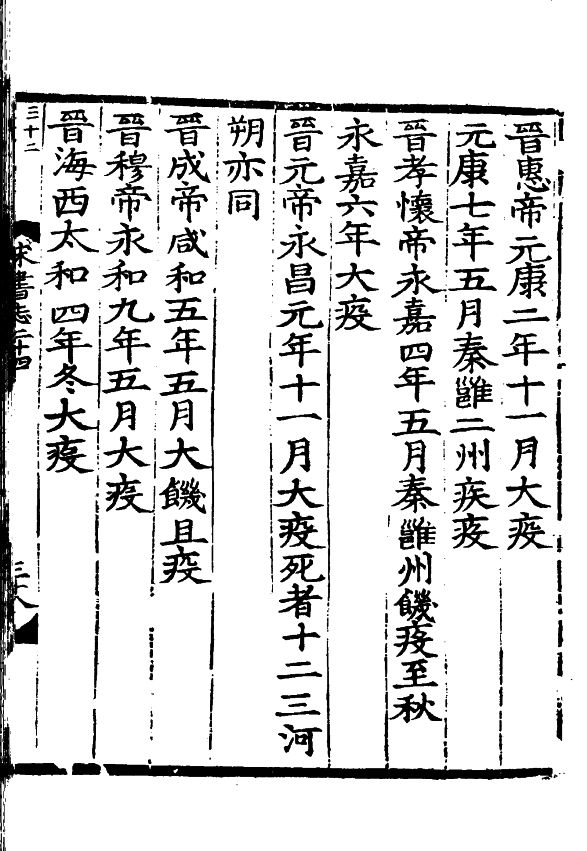 晉惠帝元康二年十一月大疫
元康七年五月秦雝二州疾疫
晉孝懷帝永嘉四年五月秦雝州饑疫至秋
永嘉六年大疫
晉元帝永昌元年十一月大疫死者十二三河
朔亦同
晉成帝咸和五年五月大饑且疫
晉穆帝永和九年五月大疫
晉海西太和四年冬大疫
三十二
宋書志二十四
三十八